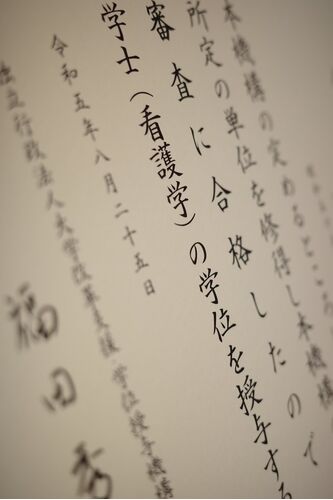 本機構の定めるところ
所定の単位を修得し本機構
審査に合格したので
学士（看護学）の学位を授与する
令和五年八月二十五日
独立行政法人大学改革支援・学位授与機構
福田秀